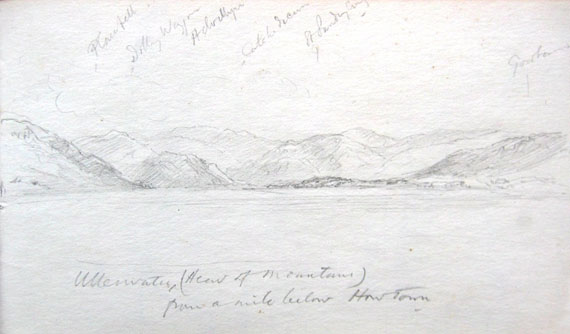 Place Fell
Dolly Waggon
Helvellyn
Catchedecam
St Sunday Crag
Gowbarrow
Ulleswater (Head of Mountains)
from a mile below Howtown